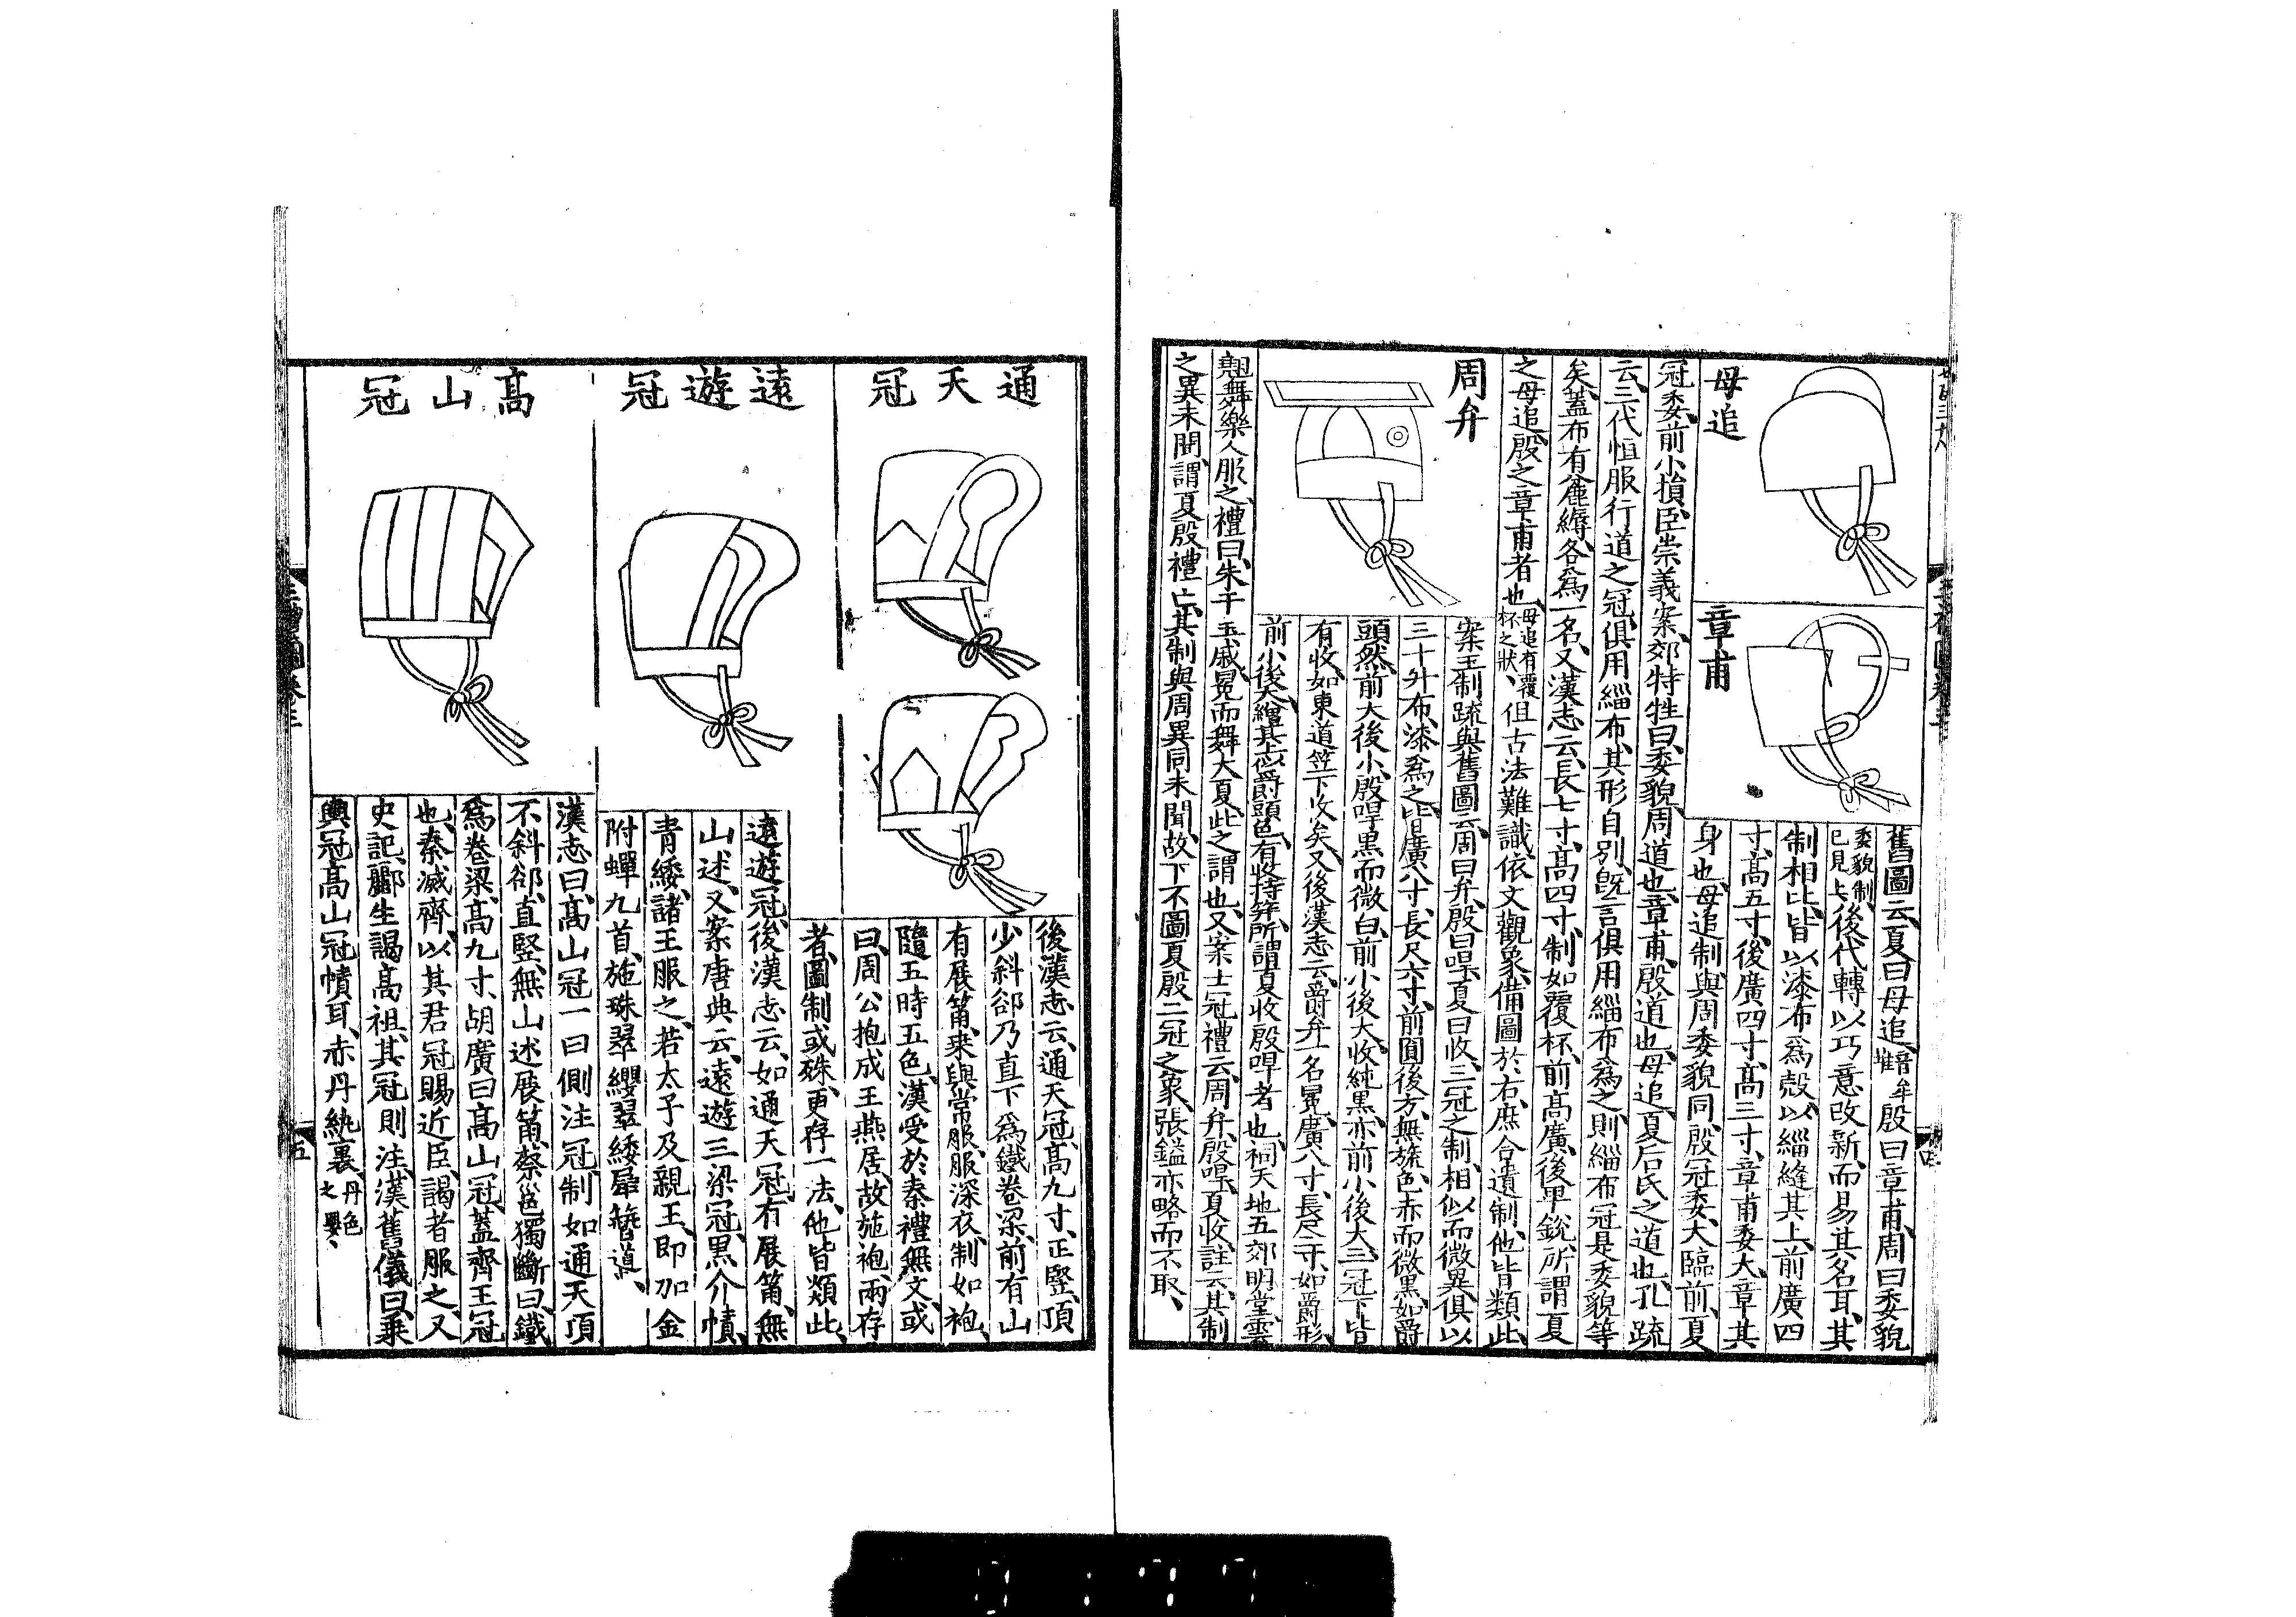 母追
章甫
舊圖云夏曰母追殷曰章甫周曰委貌
委貌制已見上後代轉以巧意改新而易其名耳其
制相比皆以漆布為殼以緇縫其上前廣四
寸高五寸後廣四寸高三寸章甫委大章其
身也母追制與周委貌同殷冠委大臨前夏
冠委前小損臣崇義案郊特牲曰委貌周道也章甫殷道也母追夏后氏之道也孔疏
云三代恒服行道之冠俱用緇布其形自別既言俱用緇布為之則緇布冠是委貌等
矣蓋布有麄縟各為一名又漢志云長七寸高四寸制如覆杯前高廣後卑銳所謂夏
之母追殷之章甫者也母追有覆杯之狀但古法難識依文觀象備圖於右庶合遺制他皆類此
周弁
案王制疏與舊圖云周曰弁殷曰冔夏曰收三冠之制相似而微異俱以
三十升布漆為之皆廣八寸長尺六寸前圓後方無旒色赤而微黑如爵
頭然前大後小殷冔黑而微白前小後大收純黑亦前小後大三冠下皆
有收如東道笠下收矣又後漢志云爵弁一名冕廣八寸長尺二寸如爵形
前小後大繒其上似爵頭色有收持筓所謂夏收殷冔者也祠天地五郊明堂雲
翹舞樂人服之禮曰朱干玉戚冕而舞大夏此之謂也又案士冠禮云周弁殷冔夏收註云其制
之異未聞謂夏殷禮亡其制與周異同未聞故下不圖夏殷二冠之象張鎰亦略而不取
通天冠
後漢志云通天冠高九寸正豎頂
少斜郤乃直下為鐵卷梁前有山
有展筩來與常服服深衣制如袍
隨五時五色漢受於秦禮無文或
曰周公抱成王燕居故施袍兩存
者圖制或殊更存一法他皆類此
遠遊冠
遠遊冠後漢志云如通天冠有展筩無
山述又案唐典云遠遊三梁冠黑介幘
青緌諸王服之若太子及親王即加金
附蟬九首施珠翠纓翠緌犀簪導
高山冠
漢志曰高山冠一曰側注冠制如通天頂
不斜郤直豎無山述展筩蔡邕獨斷曰鐵
為卷梁高九寸胡廣曰高山冠蓋齊王冠
也秦滅齊以其君冠賜近臣謁者服之又
史記酈生謁高祖其冠則注漢舊儀曰乘
輿冠高山冠幘耳赤丹紈裏丹色之
三禮圖卷三
五